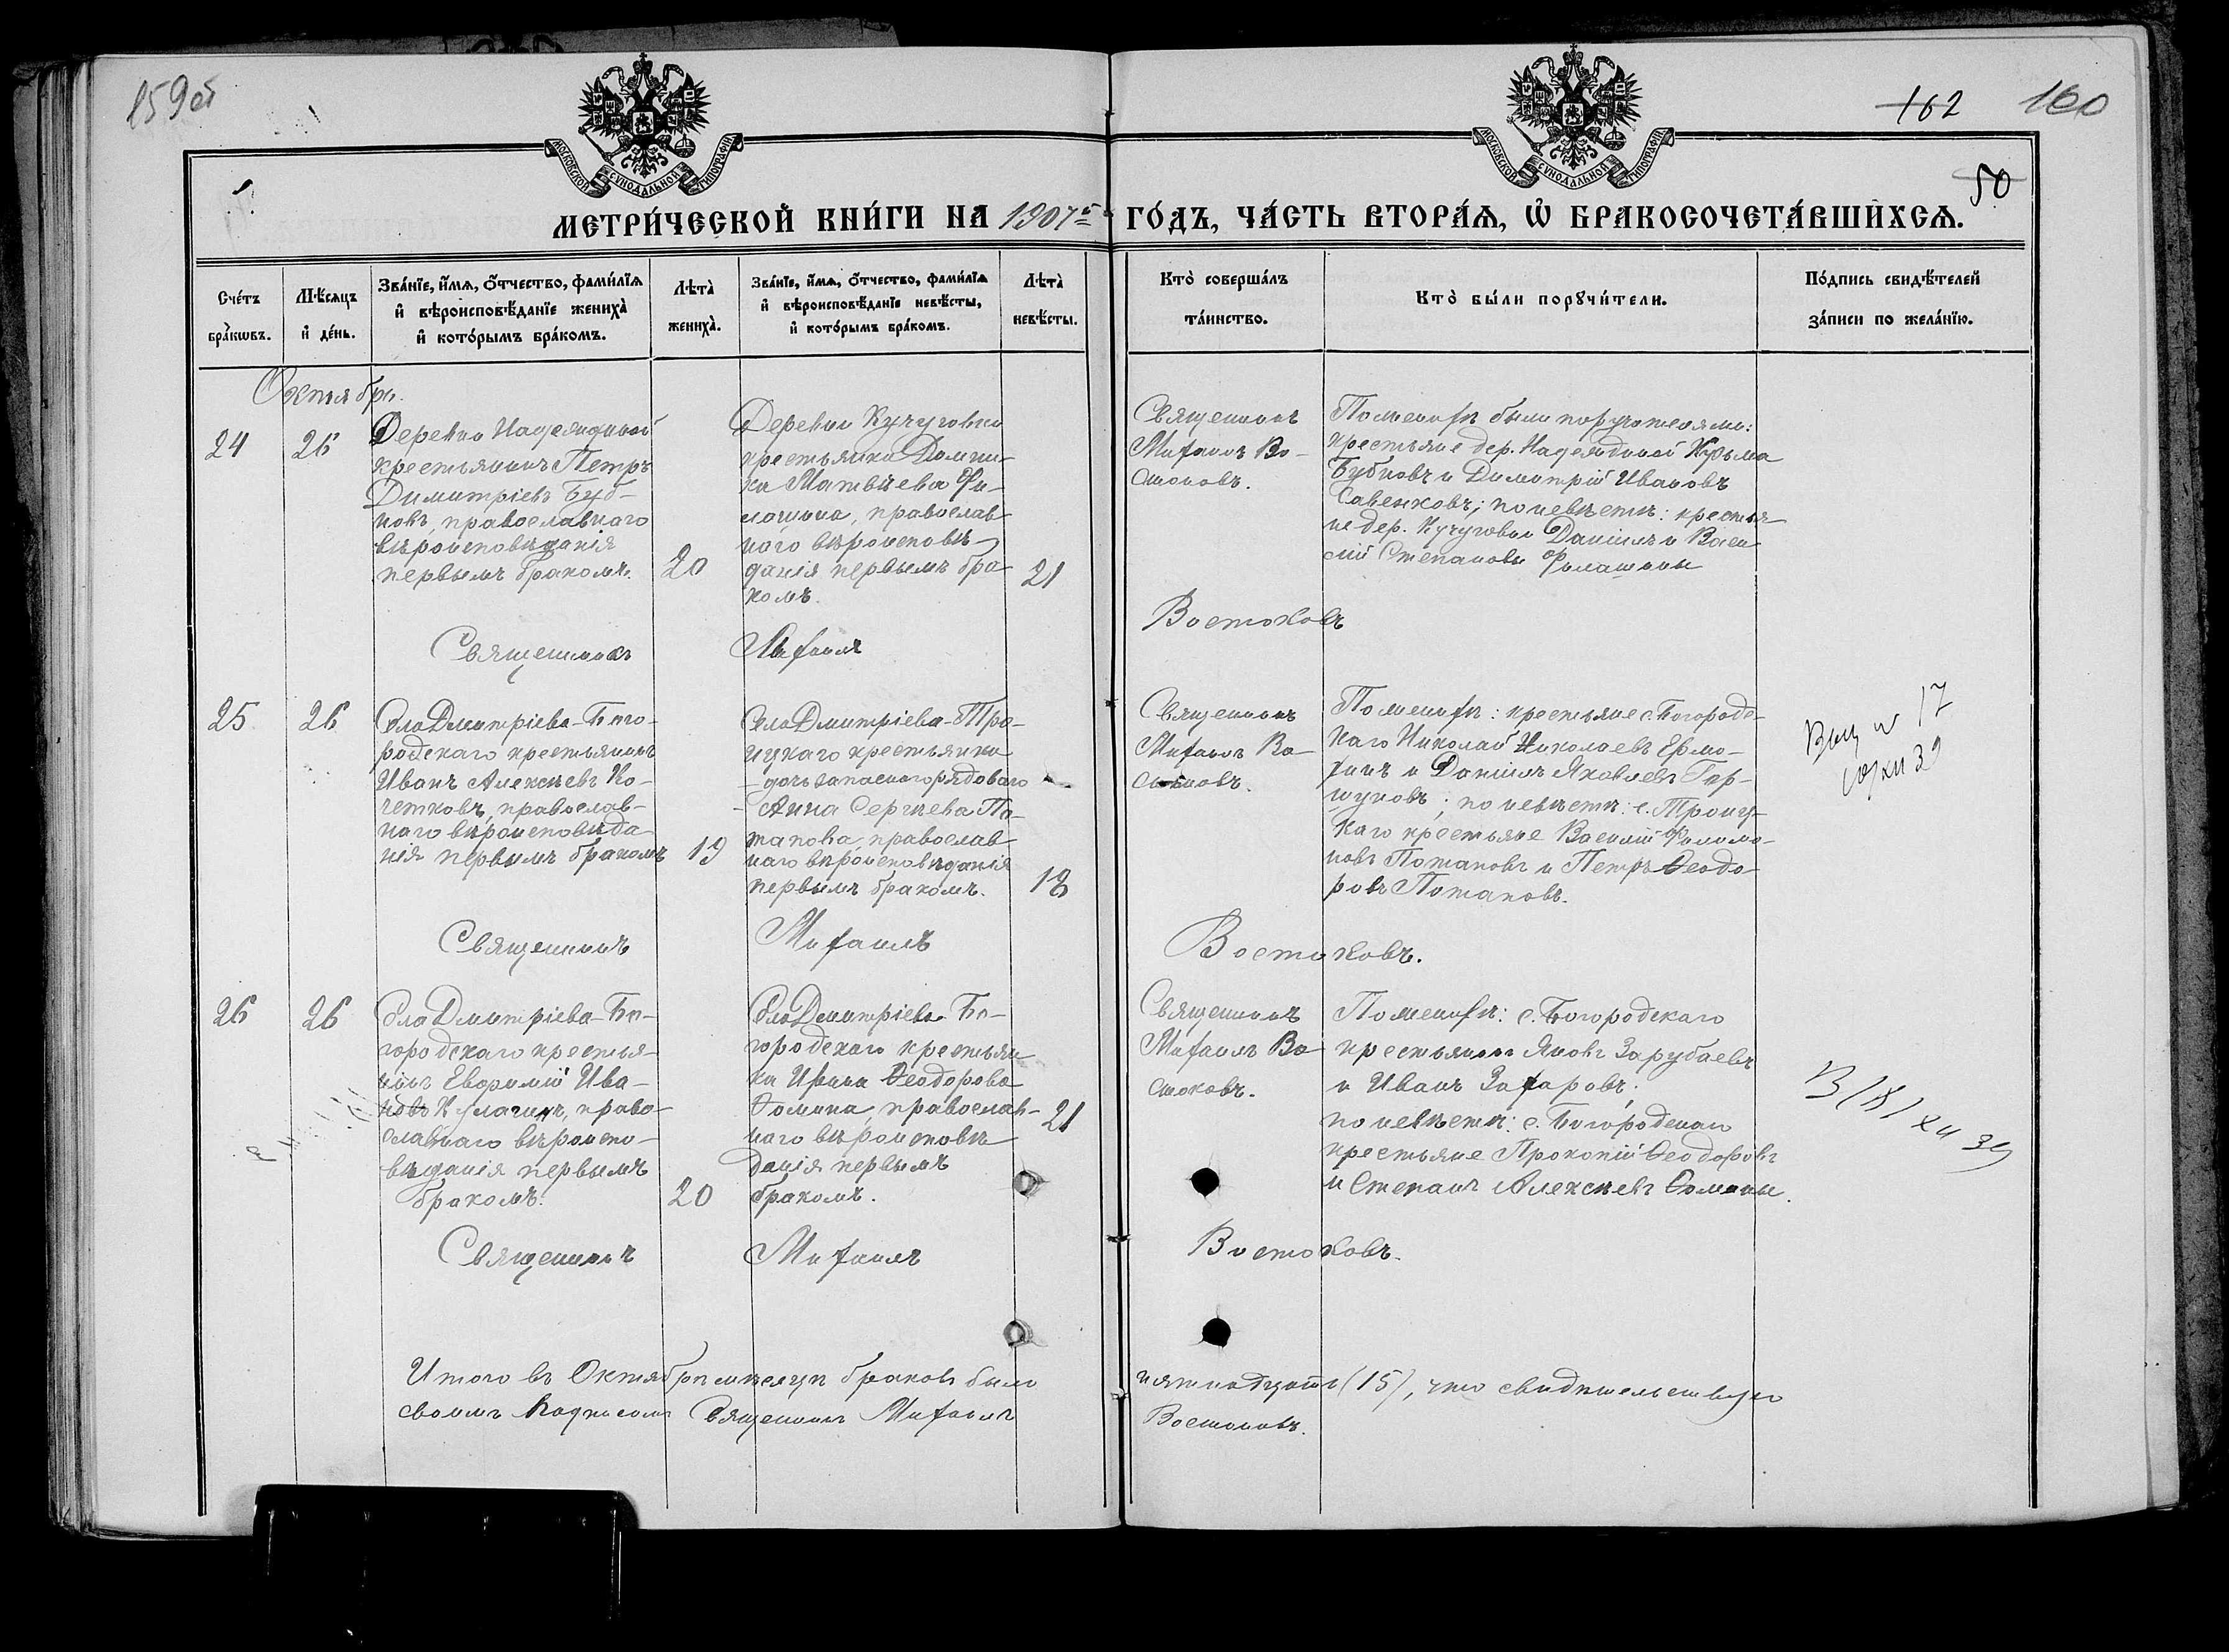 159об
162 160
50
МОСКОВСКОЙ СѴНОДАЛЬНОЙ ТИПОГРАФІИ
МОСКОВСКОЙ СѴНОДАЛЬНОЙ ТИПОГРАФІИ
МЕТРИ́ЧЕСКОЙ КНИ́ГИ НА 1907й ГО́ДЪ, ЧА́СТЬ ВТОРА́Я, Ѡ БРАКОСОЧЕТА́ВШИХСЯ.
Сче́тъ бра́кωвъ.
Мѣ́сяцъ и де́нь.
Зва́нїе, и́мя, о́тчество, фами́лїя
и вѣроисповѣ́данїе жениха̀
и кото́рымъ бра́комъ.
Лѣта̀ жениха̀.
Зва́нїе, и́мя, о́тчество, фами́лїя
и вѣроисповѣ́данїе невѣ́сты,
и кото́рымъ бра́комъ.
Лѣта̀ невѣ́сты.
Кто̀ соверша́лъ та́инство.
Кто̀ бы́ли порꙋчи́тели.
По́дпись свидѣ́телей за́писи по жела́нїю.
Октября.
24
26
Деревни Надеждиной
крестьянинъ Петръ
Димитріевъ Буб-
новъ, православнаго
вѣроисповѣданія
первымъ бракомъ.
20
Деревни Кучуговки
крестьянка Домни-
ка Матвѣева Фи-
лашина, православ
наго вѣроисповѣ-
данія первымъ бра
комъ.
21
Священникъ
Михаилъ Во-
стоковъ.
По женихѣ были поручителями:
крестьяне дер. Надеждиной Кузьма
Бубновъ и Димитрій Ивановъ
Савенковъ; по невѣстѣ: крестья
не дер. Кучуговки Даніилъ и Васи
лій Степановы Филашины
Священникъ Михаилъ Востоковъ
25
26
Села Дмитріева-Бого-
родскаго крестьянинъ
Иванъ Алексѣевъ Ко-
четковъ, православ-
наго вѣроисповѣда-
нія первымъ бракомъ
19
Села Дмитріева-Тро-
ицкаго крестьянка
- дочь запаснаго рядоваго
- Анна Сергѣева По-
тапова, православ
наго вѣроисповѣданія
первымъ бракомъ.
18
Священникъ
Михаилъ Во-
стоковъ.
По женихѣ: крестьяне с. Богородс-
каго Николай Николаевъ Ермо-
хинъ и Даніилъ Яковлевъ Гор-
шуновъ; по невѣстѣ: с. Троиц-
каго крестьяне Василій Филимо-
новъ Потаповъ и Петръ Ѳеодо-
ровъ Потаповъ.
17
39
Священникъ Михаилъ Востоковъ.
26
26
Села Дмитріева-Бо-
городскаго крестья-
нинъ Евфимій Ива-
новъ Кулагинъ, право-
славнаго вѣроиспо-
вѣданія первымъ
бракомъ.
20
Села Дмитріева-Бо-
городскаго крестьян
ка Ирина Ѳеодорова
Ѳомина, православ-
наго вѣроисповѣ
данія первымъ
бракомъ.
21
Священникъ
Михаилъ Во-
стоковъ.
По женихѣ: с. Богородскаго
крестьяне Яковъ Зарубаевъ
и Иванъ Захаровъ;
по невѣстѣ: с. Богородскаго
крестьяне Прокопій Ѳеодоровъ
и Степанъ Алексѣевъ Ѳомины.
39
Священникъ Михаилъ Востоковъ.
Итого въ Октябрѣ мѣсяцѣ браковъ было пятнадцать (15), что свидѣтельствую
своимъ подписомъ Священникъ Михаилъ Востоковъ.